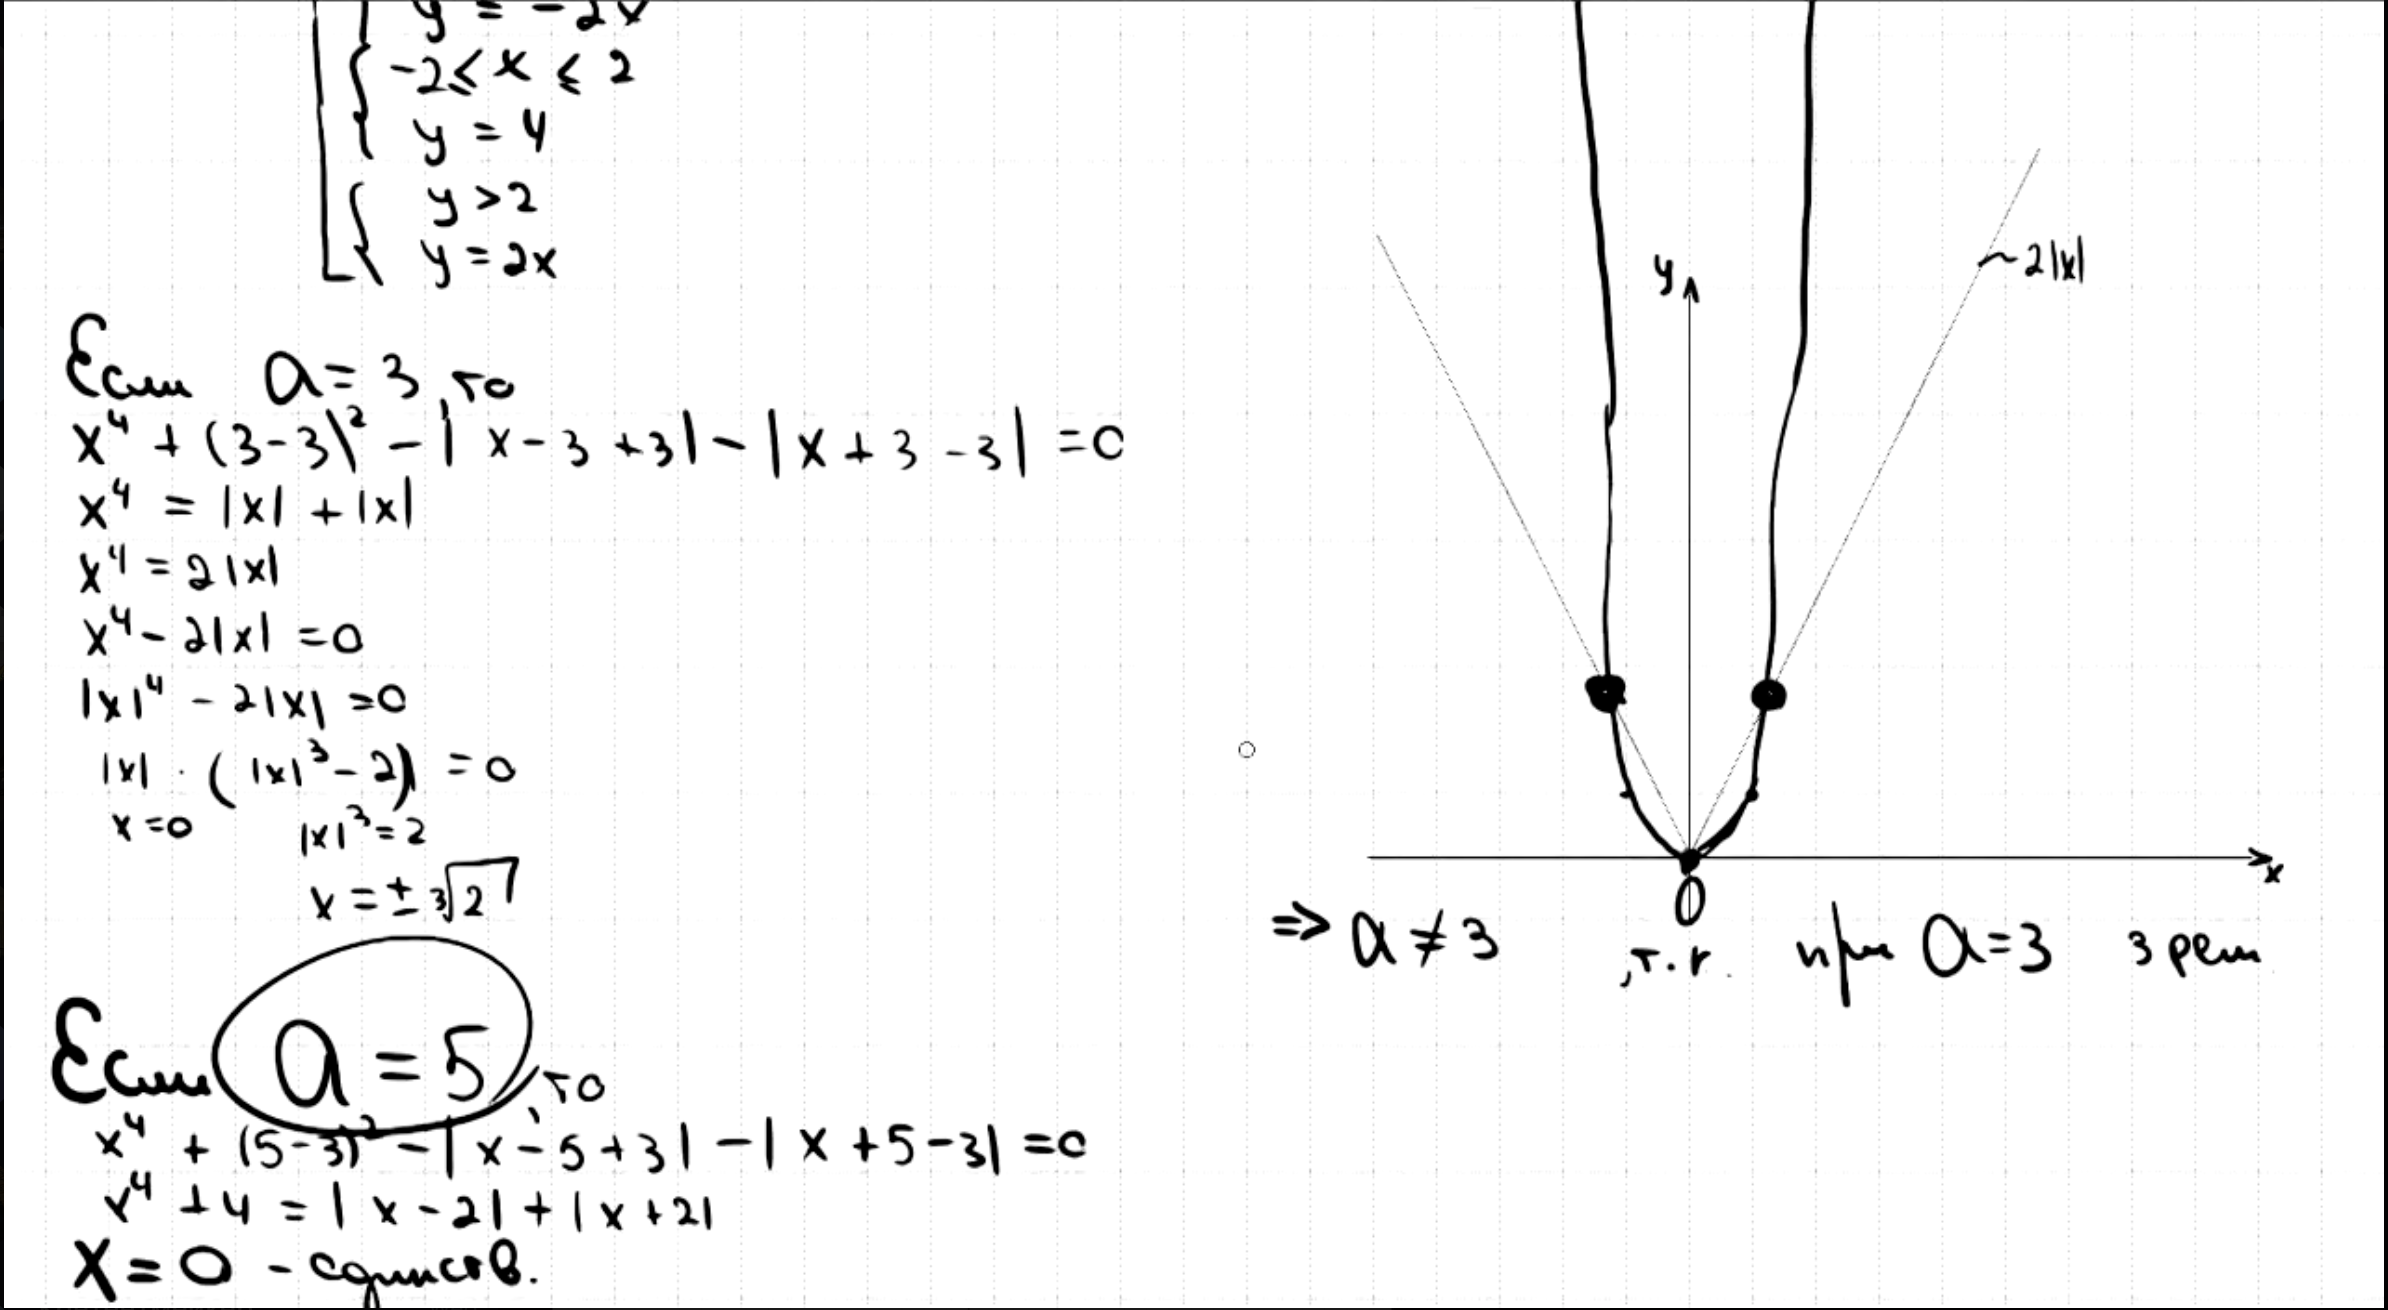 y = -2x
-2 ≤ x ≤ 2
y = 4
y > 2
y = 2x
Если a = 3, то
x⁴ + (3-3)² - |x-3+3| - |x+3-3| = 0
x⁴ = |x| + |x|
x⁴ = 2|x|
x⁴ - 2|x| = 0
|x|⁴ - 2|x| = 0
|x| · (|x|³ - 2) = 0
x = 0 |x|³ = 2
x = ± ³√2
Если a = 5, то
x⁴ + (5-3)² - |x-5+3| - |x+5-3| = 0
x⁴ + 4 = |x-2| + |x+2|
x = 0 - единств.
y
~2|x|
x
0
⇒ a ≠ 3, т.к. при a = 3 3 реш